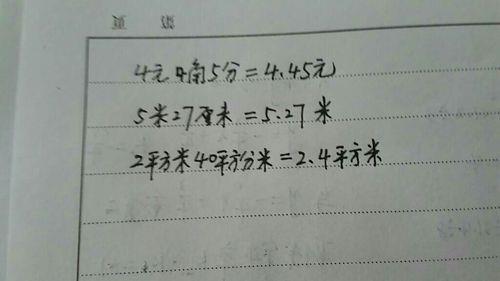 第 页
4元4角5分=4.45元
5米27厘米=5.27米
2平方米40平方分米=2.4平方米